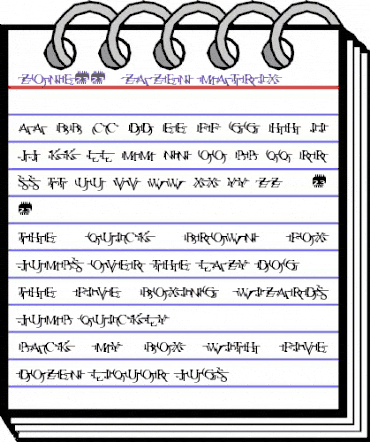 ZONE ZAZEN MATRIX
AA BB CC DD EE FF GG HH II
JJ KK LL MM NN OO PP QQ RR
SS TT UU VV WW XX YY ZZ
THE QUICK BROWN FOX
JUMPS OVER THE LAZY DOG
THE FIVE BOXING WIZARDS
JUMP QUICKLY
PACK MY BOX WITH FIVE
DOZEN LIQUOR JUGS